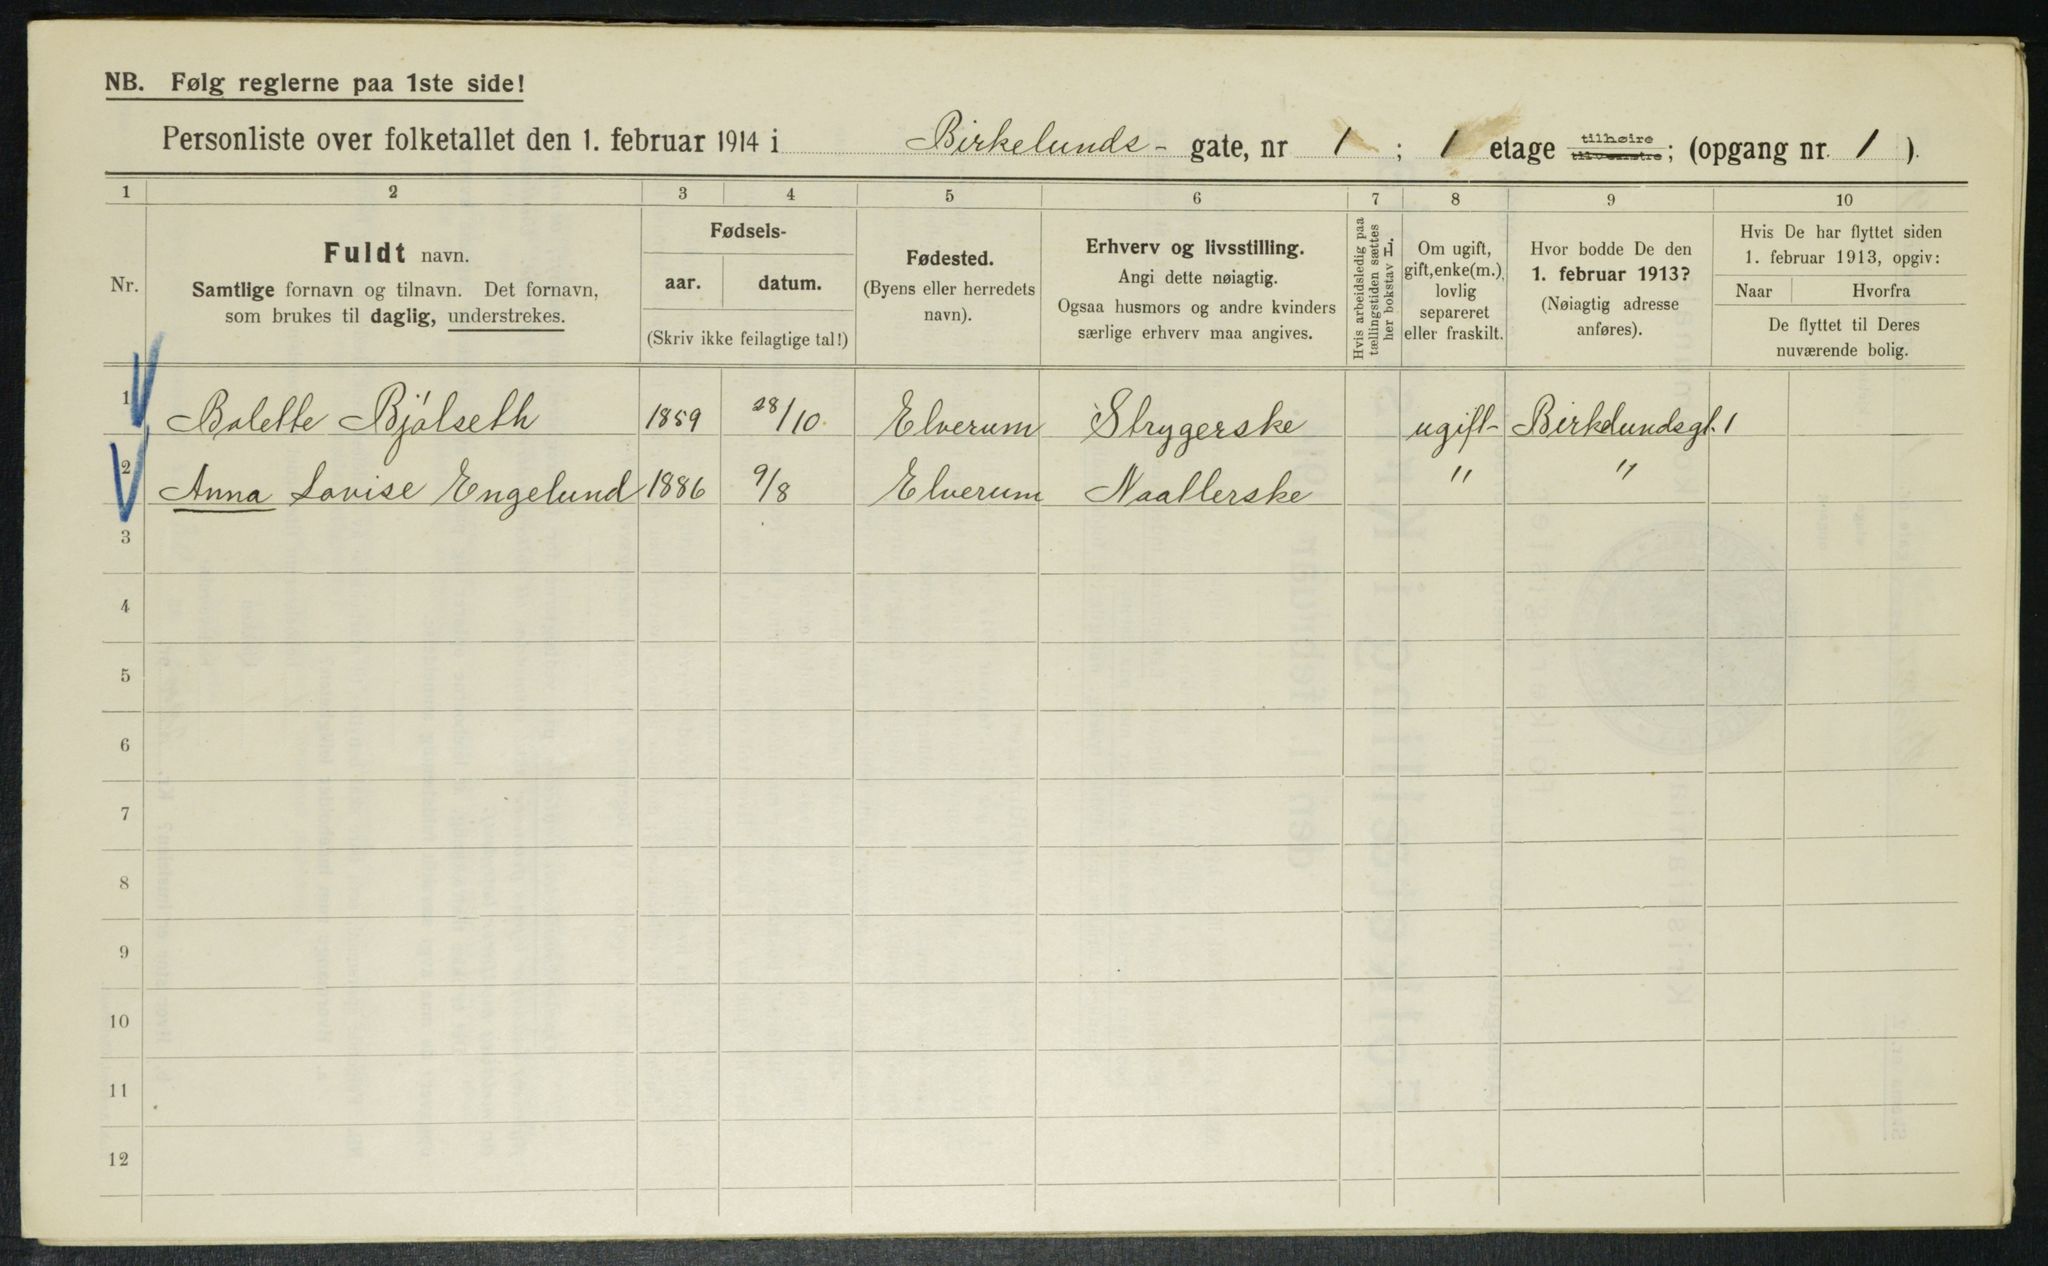 NB. Følg reglerne paa 1ste side!
Personliste over folketallet den 1. februar 1914 i Birkelunds- gate, nr 1 ; 1 etage tilhøire tilvenstre; (opgang nr. 1 ).
1 2 3 4 5 6 7 8 9 10
Nr.
Fuldt navn.
Samtlige fornavn og tilnavn. Det fornavn,
som brukes til daglig, understrekes.
Fødsels-
aar. datum.
(Skriv ikke feilagtige tal!)
Fødested.
(Byens eller herredets
navn).
Erhverv og livsstilling.
Angi dette nøiagtig.
Ogsaa husmors og andre kvinders
særlige erhverv maa angives.
Hvis arbeidsledig paa
tællingstiden sættes
her bokstav L.
Om ugift,
gift, enke(m.),
lovlig
separeret
eller fraskilt.
Hvor bodde De den
1. februar 1913?
(Nøiagtig adresse
anføres).
Hvis De har flyttet siden
1. februar 1913, opgiv:
Naar Hvorfra
De flyttet til Deres
nuværende bolig.
1 Bolette Bjølseth 1859 28/10. Elverum Strygerske ugift- Birkelundsgt. 1
2 Anna Lovise Engelund 1886 9/8 Elverum Naatlerske " "
3
4
5
6
7
8
9
10
11
12